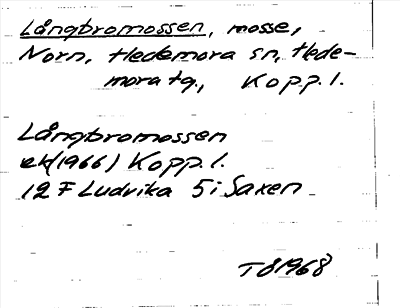 Långbromossen, mosse,
Norn, Hedemora sn, Hede-
mora tg., Kopp. l.
Långbromossen
ek(1966) Kopp. l.
12 F Ludvika 5i Saxen
TÖ 1968